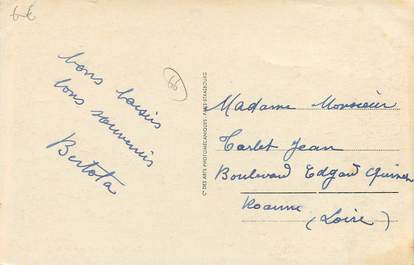 6-€
bons baisers
bons souvenirs
Bertota
66
Cie DES ARTS PHOTOMÉCANIQUES - PARIS-STRASBOURG
Madame Monsieur
Tarlet Jean
Boulevard Edgard Quinet
Roanne
(Loire)